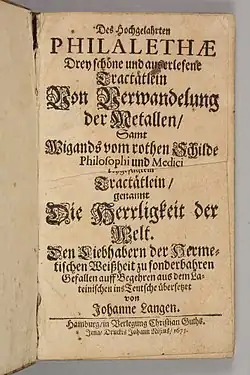 Des Hochgelahrten
PHILALETHÆ
Drey schöne und außerlesene
Tractätlein
Von Verwandelung
der Metallen/
Samt
Wigands vom rothen Schilde
Philosophi und Medici
Tractätlein/
genannt
Die Herrligkeit der
Welt.
Den Liebhabern der Herme-
tischen Weißheit zu sonderbahren
Gefallen auff Begehren aus dem La-
teinischen ins Teutsche übersetzet
von
Johanne Langen.
Hamburg/ in Verlegung Christian Guths.
Jena/ Druckts Johann